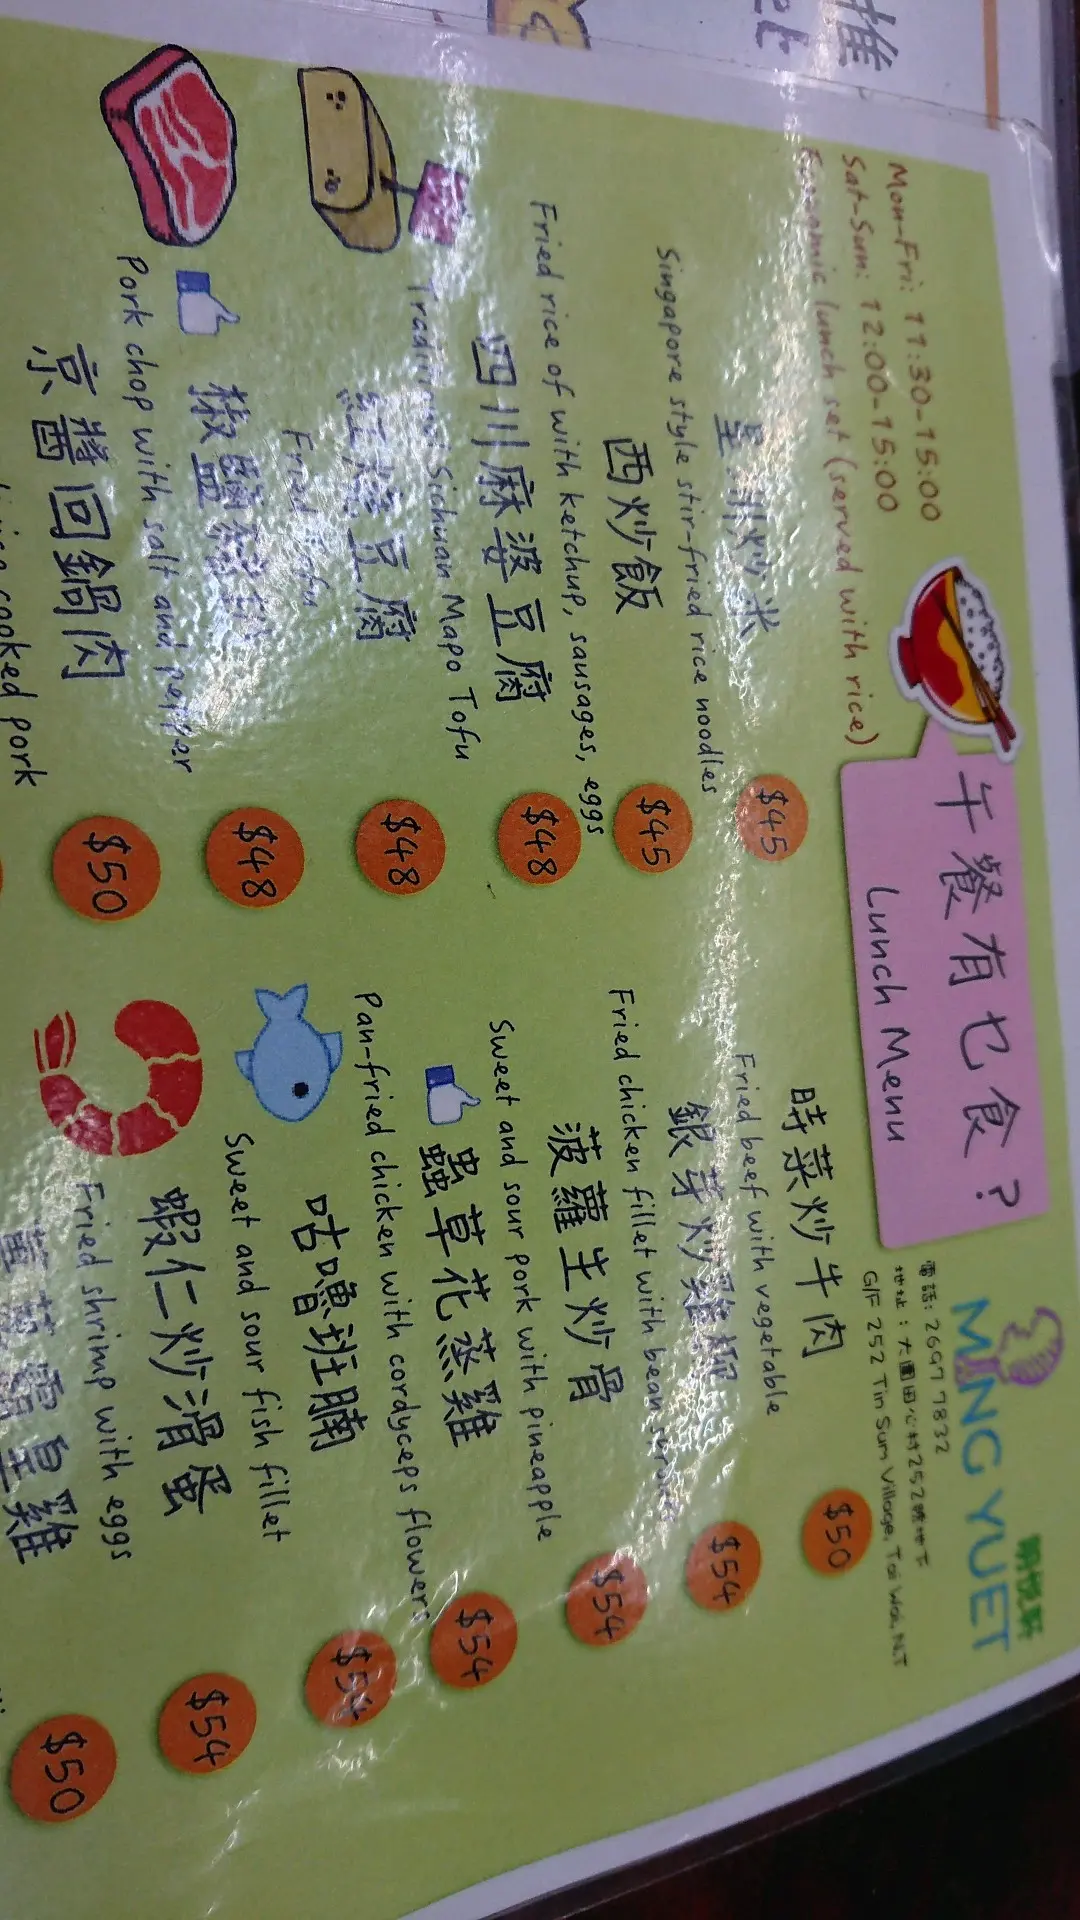 推
午餐有乜食?
Lunch Menu
MING YUET
明悅軒
電話: 2697 7832
地址: 大圍田心村252號地下
G/F 252 Tin Sum Village, Tai Wai, N.T
Mon-Fri: 11:30-15:00
Sat-Sun: 12:00-15:00
Economic lunch set (served with rice)
星洲炒米
$45
Singapore style stir-fried rice noodles
西炒飯
$45
Fried rice of with ketchup, sausages, eggs
四川麻婆豆腐
$48
Traditional Sichuan Mapo Tofu
紅燒豆腐
$48
Fried Tofu
椒鹽
$48
Pork chop with salt and pepper
京醬回鍋肉
$50
cooked pork
時菜炒牛肉
$50
Fried beef with vegetable
銀芽炒雞柳
$54
Fried chicken fillet with bean sprouts
菠蘿生炒骨
$54
Sweet and sour pork with pineapple
蟲草花蒸雞
$54
Pan-fried chicken with cordyceps flowers
咕嚕班腩
$54
Sweet and sour fish fillet
蝦仁炒滑蛋
$54
Fried shrimp with eggs
霸皇雞
$50